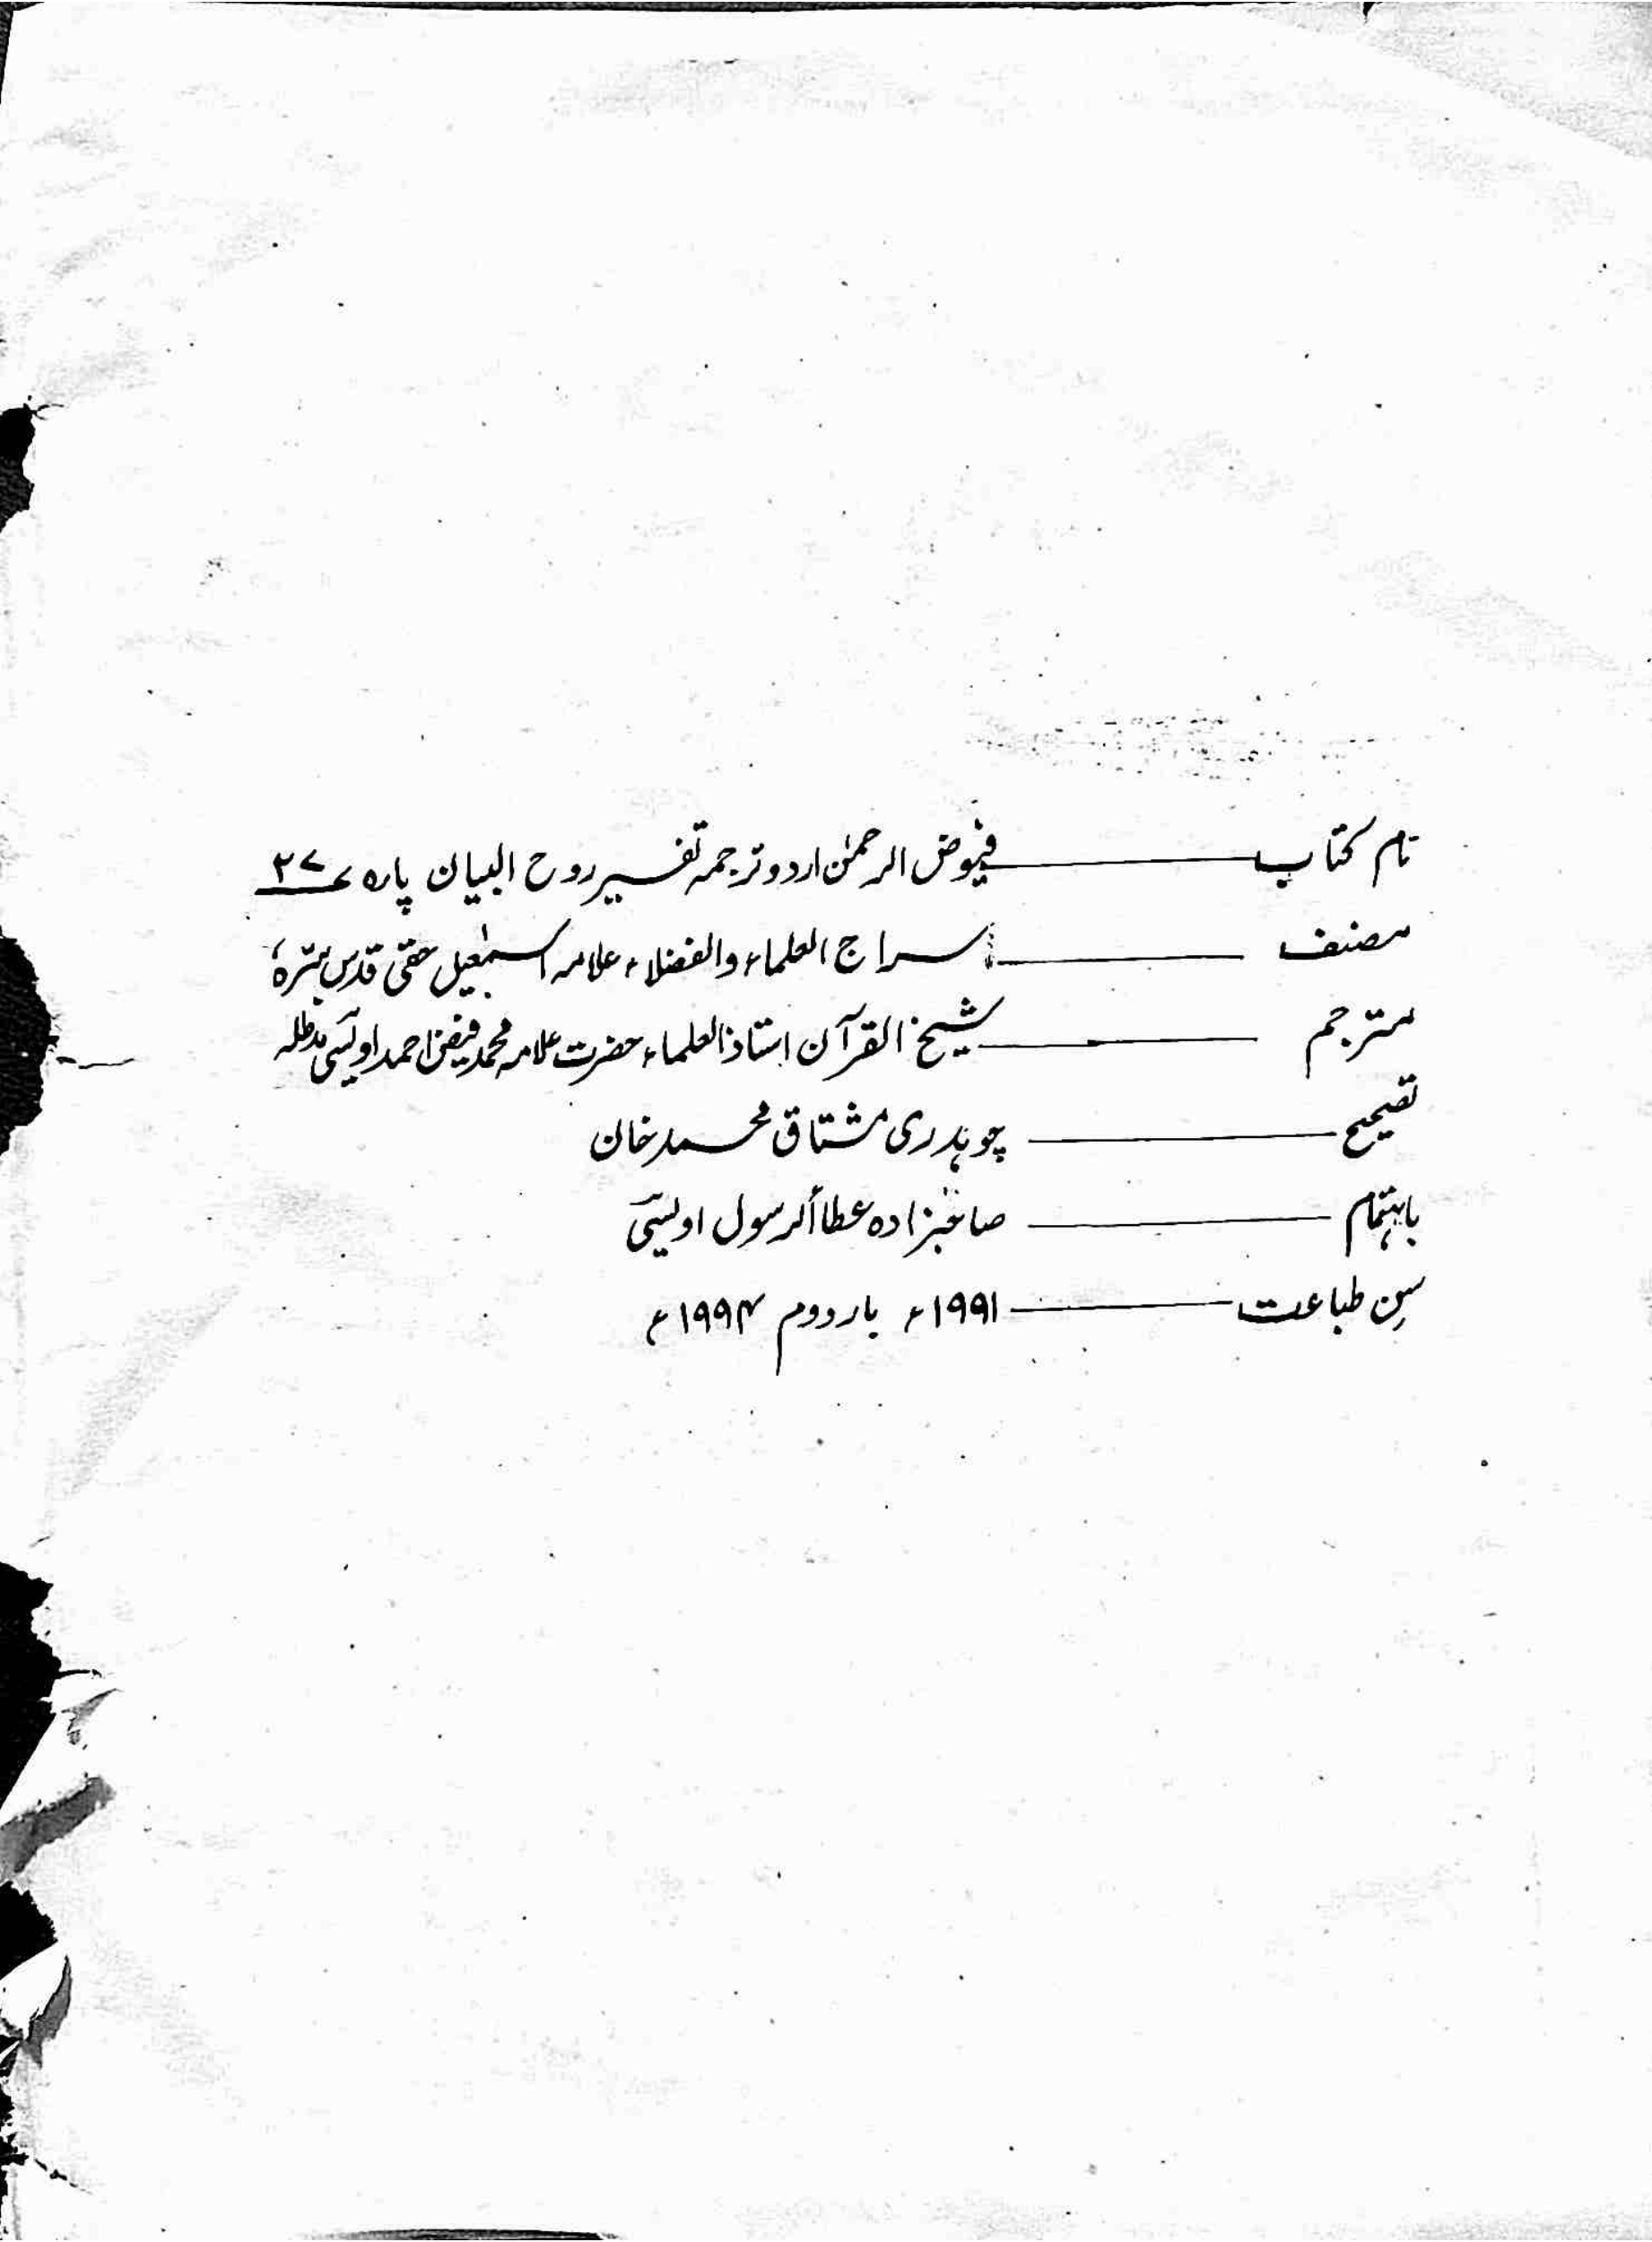 نام کتاب ــــــ فیوض الرحمٰن اردو ترجمہ تفسیر روح البیان پارہ ۲۷
مصنف ــــــ سراج العلماء والفضلاء علامہ اسمٰعیل حقی قدس سرہٗ
مترجم ــــــ شیخ القرآن استاذ العلماء حضرت علامہ محمد فیض احمد اویسی مدظلہ
تصحیح ــــــ چوہدری مشتاق محمد خان
باہتمام ــــــ صاحبزادہ عطاألرسول اویسی
سن طباعت ــــــ ۱۹۹۱ء بار دوم ۱۹۹۴ء